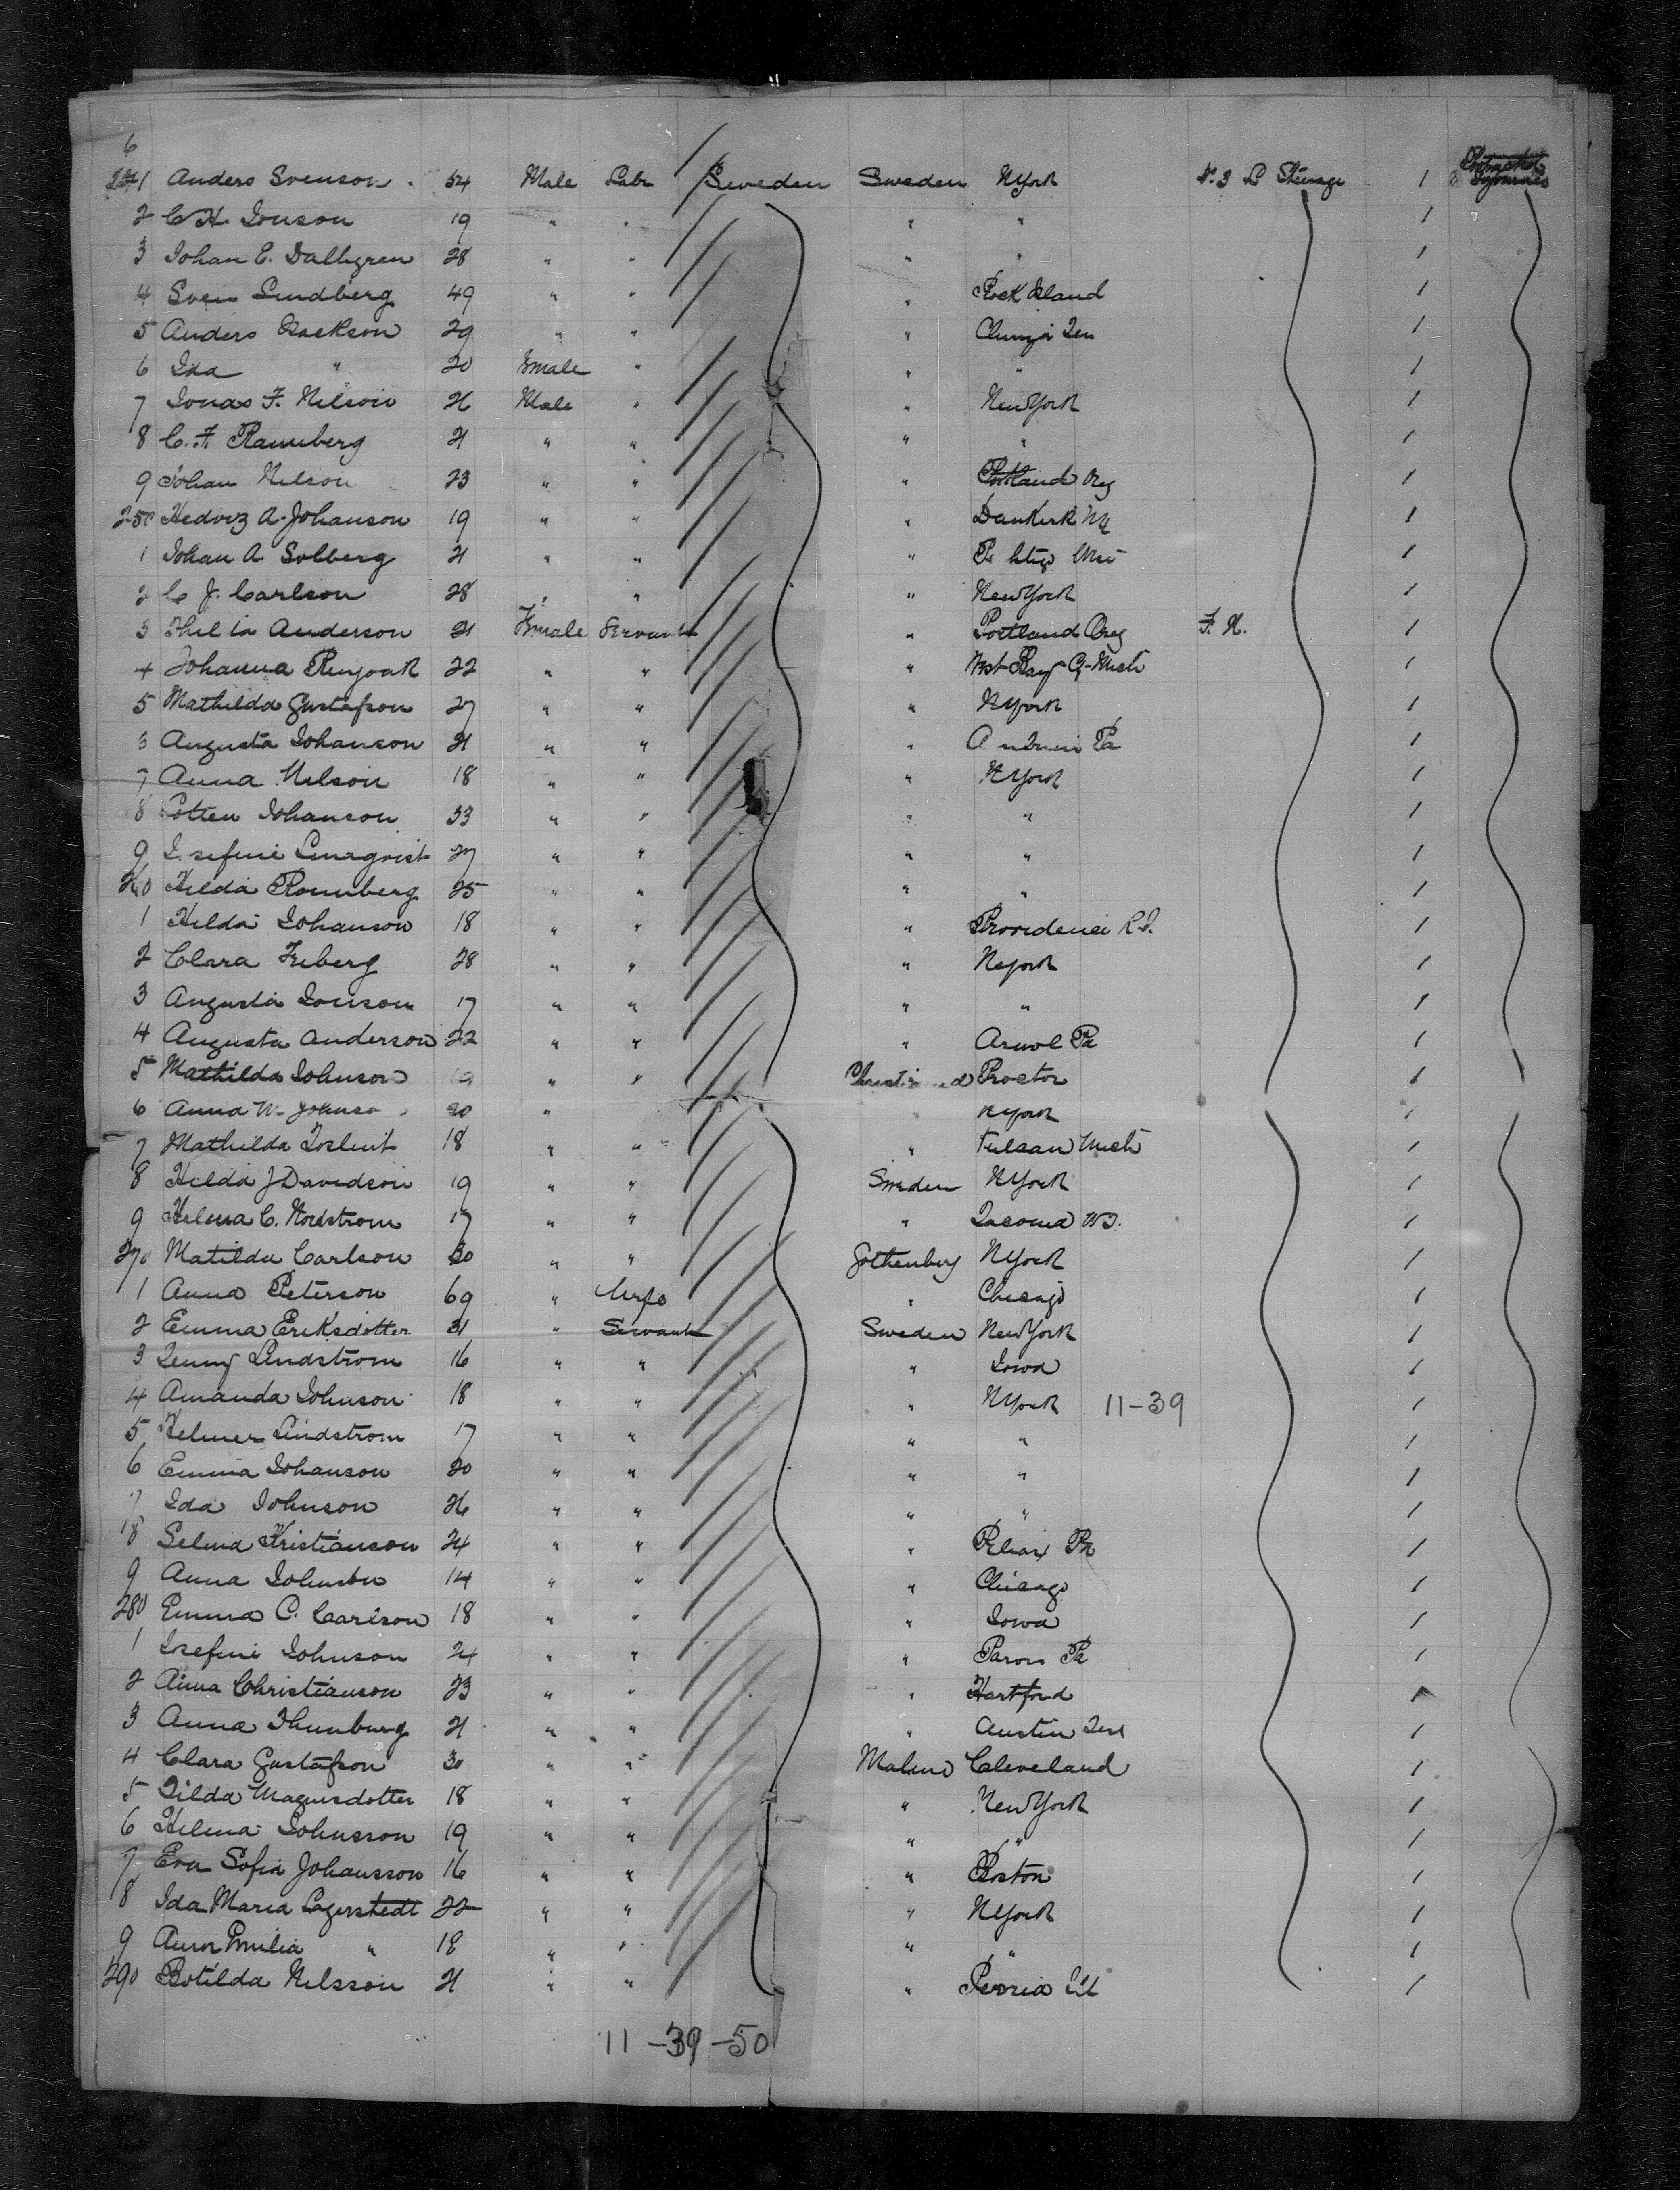 6
241 Anders Svenson 54 Male Labr Sweden Sweden NYork No. 3 L Steerage 1
2 C H Jonson 19 " " " " 1
3 Johan E. Dallgren 28 " " " " 1
4 Sven Lindberg 49 " " " Rock Island 1
5 Anders Isackson 29 " " " 1
6 Ida " 20 Female " " " 1
7 Jonas F. Nilson 26 Male " " New York 1
8 C. F. Ramberg 21 " " " " 1
9 Johan Nilson 23 " " " Portland Oreg 1
250 Hedvig A. Johanson 19 " " " Dunkirk NY 1
1 Johan A. Solberg 21 " " " 1
2 C J. Carlson 28 " " " New York 1
3 Anderson 21 Female Servant " Portland Oreg F. H. 1
4 Johanna 22 " " " West Bay C. Mich 1
5 Mathilda Gustafson 27 " " " NYork 1
6 Augusta Johanson 21 " " " Pa 1
7 Anna Nilson 18 " " " NYork 1
8 Johanson 33 " " " " 1
9 Josefine 27 " " " " 1
260 Hilda Romberg 25 " " " " 1
1 Hilda Johanson 18 " " " Providence R.I. 1
2 Clara Friberg 28 " " " NYork 1
3 Augusta Jonson 17 " " " " 1
4 Augusta Anderson 22 " " " Pa 1
5 Mathilda Johnson 19 " " Proctor 1
6 Anna W. Johnso 20 " NYork 1
7 Mathilda 18 " " " Mich 1
8 Hilda J Davidson 19 " " Sweden NYork 1
9 Helena C. Nordstrom 17 " " " Tacoma W.T. 1
270 Matilda Carlson 30 " " Gothenburg NYork 1
1 Anna Peterson 69 " Wife " Chicago 1
2 Emma Eriksdotter 31 " Servant Sweden New York 1
3 Jenny Lindstrom 16 " " " Iowa 1
4 Amanda Johnson 18 " " " NYork 11-39 1
5 Helmer Lindstrom 17 " " " " 1
6 Emma Johanson 20 " " " " 1
7 Ida Johnson 26 " " " " 1
8 Selma Kristianson 24 " " " Pa 1
9 Anna Johnson 14 " " " Chicago 1
280 Emma C. Carlson 18 " " " Iowa 1
1 Josefine Johnson 24 " " " Pa 1
2 Christianson 23 " " " Hartford 1
3 Anna Thunburg 21 " " " Austin Tex 1
4 Clara Gustafson 30 " " Malmo Cleveland 1
5 Magnusdotter 18 " " " New York 1
6 Hilma Johnsson 19 " " " " 1
7 Eva Sofia Johansson 16 " " " Boston 1
8 Ida Maria Lagerstedt 22 " " " NYork 1
9 Emilia " 18 " " " " 1
290 Botilda Nilsson 21 " " " Peoria Ill 1
11-39-50